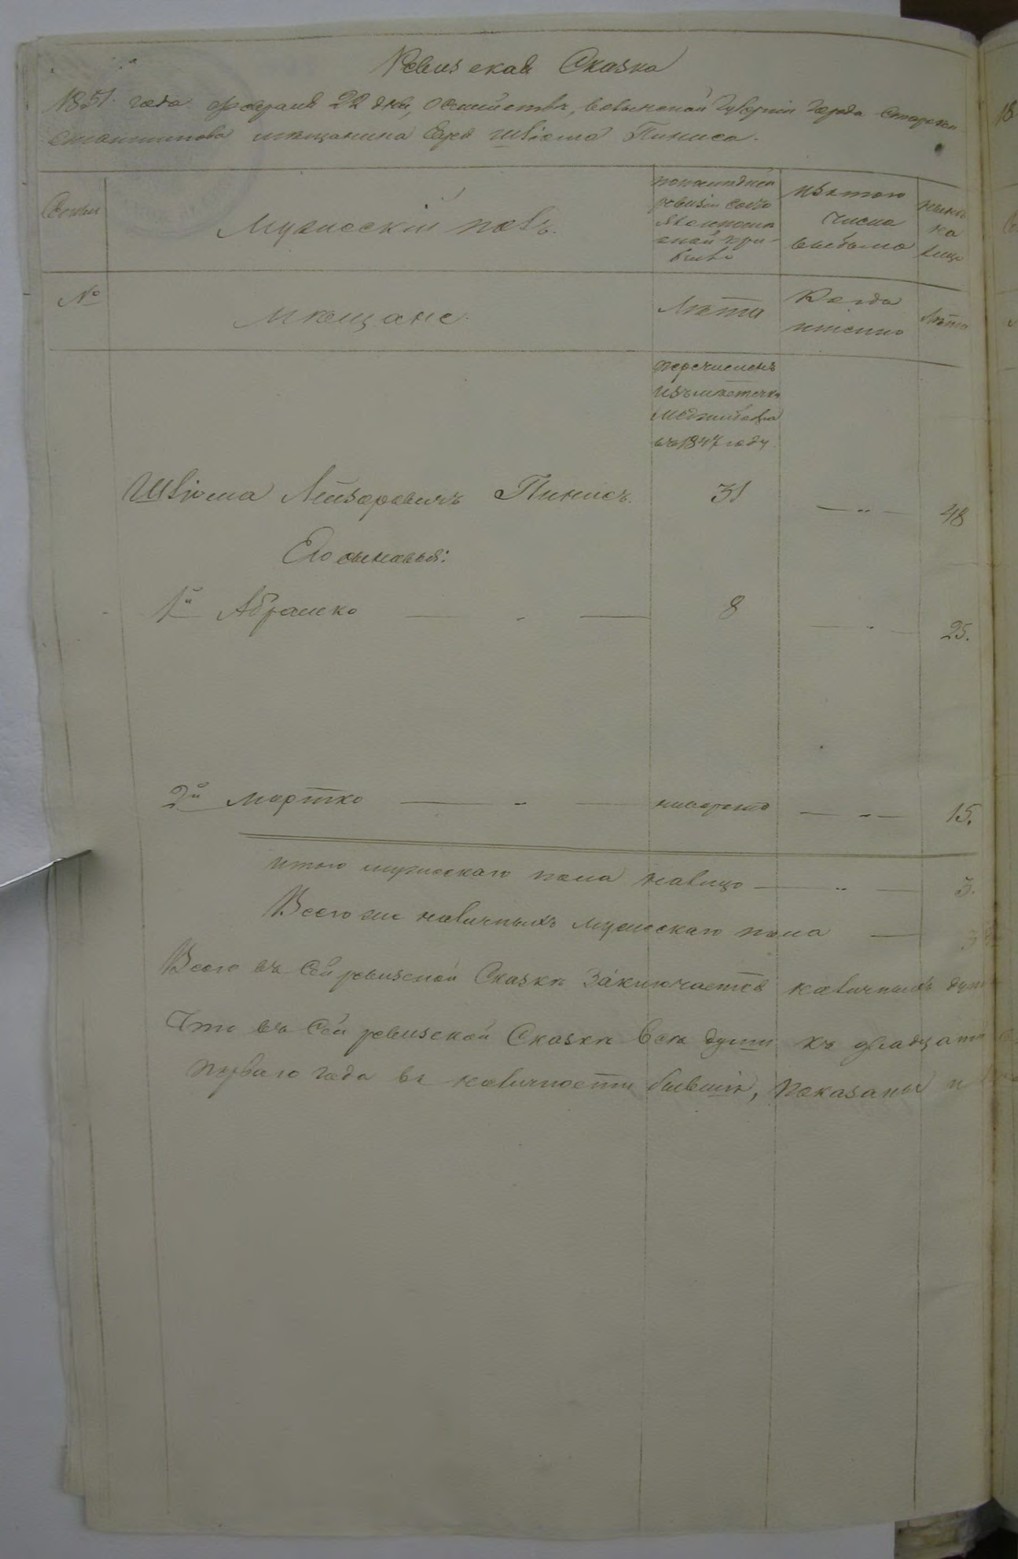 Ревизская Сказка
1851 года февраля 22 дня, о семействе, Волынской Губернии города Старокон
стантинова мещанина Еврея Шліома Пинкиса.
Семьи
Мужескій полъ.
по последней ревизіи состояло и после оной прибыло
Изъ того числа выбыло
Ныне на лицо
№
Мещане.
Лета
Когда именно
Лета
перечисленъ
изъ местечка
Меджибожа
въ 1847 году
Шліома Лейзоровичъ 31 — „ — 48
Его сыновья:
1й Абрамко — „ — 8 — „ — 25.
2й Мортко — „ — — „ — 15.
итого мужескаго пола налицо — „ — 3.
Всего же наличныхъ мужескаго пола —
Всего въ сей ревизской Сказке заключается наличныхъ
Что въ сей ревизской Сказке все души къ двадцати
первого года въ наличности бывшія, показаны и